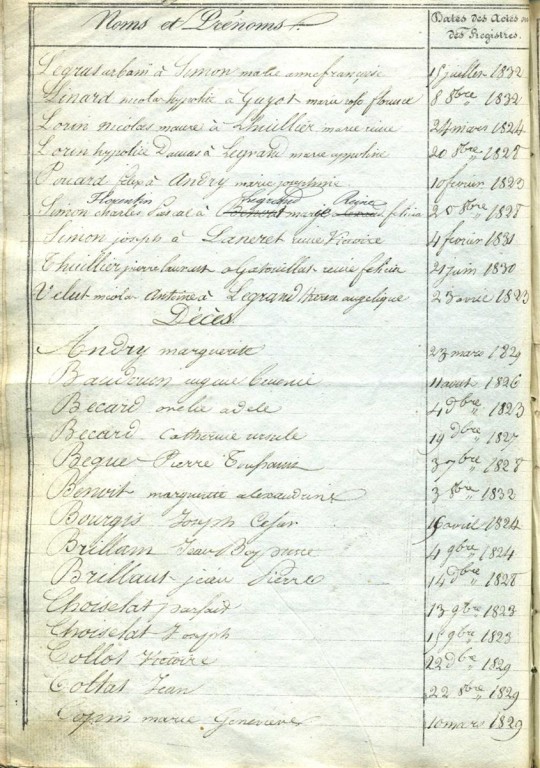 Noms et Prénoms. Dates des Actes ou des Registres.
Legras urbain à Simon marie anne françoise 15 juillet 1832
Linard nicolas hypolite à Guyot marie rose florine 8 8bre 1832
Lorin nicolas maurice à Lhuillier marie reine 24 mars 1824
Lorin hypolite Dauras à Legrand marie appoline 20 8bre 1828
Pouard felix à Andry marie josephine 10 fevrier 1823
Florentin Legrand Reine
Simon charles Pascal à Benoit marie felicia 20 8bre 1828
Simon joseph à Laneret reine Victoire 4 fevrier 1831
Thuillier pierre laurent à Gatouillat reine felicia 21 juin 1830
Velut nicolas Antoine à Legrand theresa angelique 23 avril 1823
Décès.
Andry marguerite 23 mars 1829
Baudouin 11 aout 1826
Becard amelie adele 4 dbre 1823
Becard Catherine ursule 19 dbre 1827
Beque Pierre Toussaint 3 7bre 1828
Benoit marguerite alexandrine 3 8bre 1832
Bourgis Joseph Cesar 19 avril 1824
Brillant Jean Bap pierre 4 9bre 1824
Brillaut jean Pierre 14 dbre 1828
Choiselat parfait 13 9bre 1823
Choiselat Joseph 15 9bre 1823
Collot Victoire 22 dbre 1829
Collat Jean 22 8bre 1829
Copin marie Genevieve 10 mars 1829